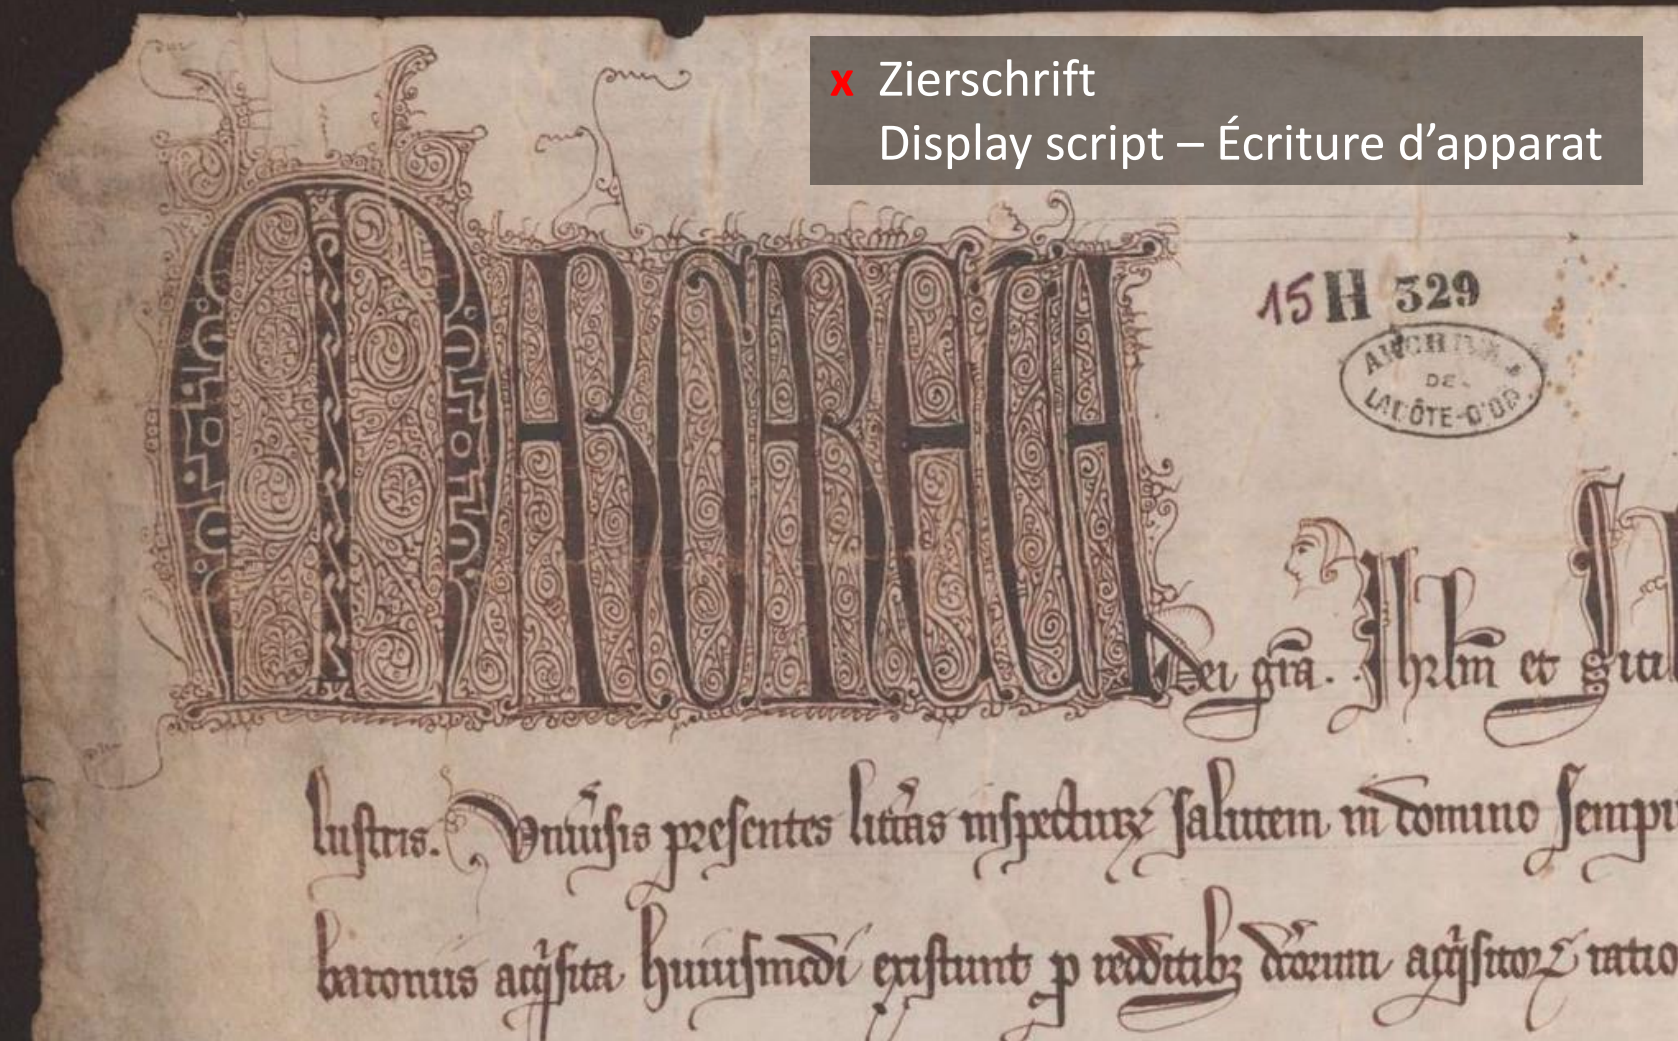 x Zierschrift
Display script – Écriture d’apparat
15 H 329
ARCHIVES
DE
LA CÔTE-D'OR
MARGARETA Dei gra. Ihrlm et Sicil
lustris. Vniusis presentes litras inspecturꝝ salutem in domino sempi
baroniis acqisita huiusmodi existunt p redditibꝫ dcorum acqisitoꝝ ratio